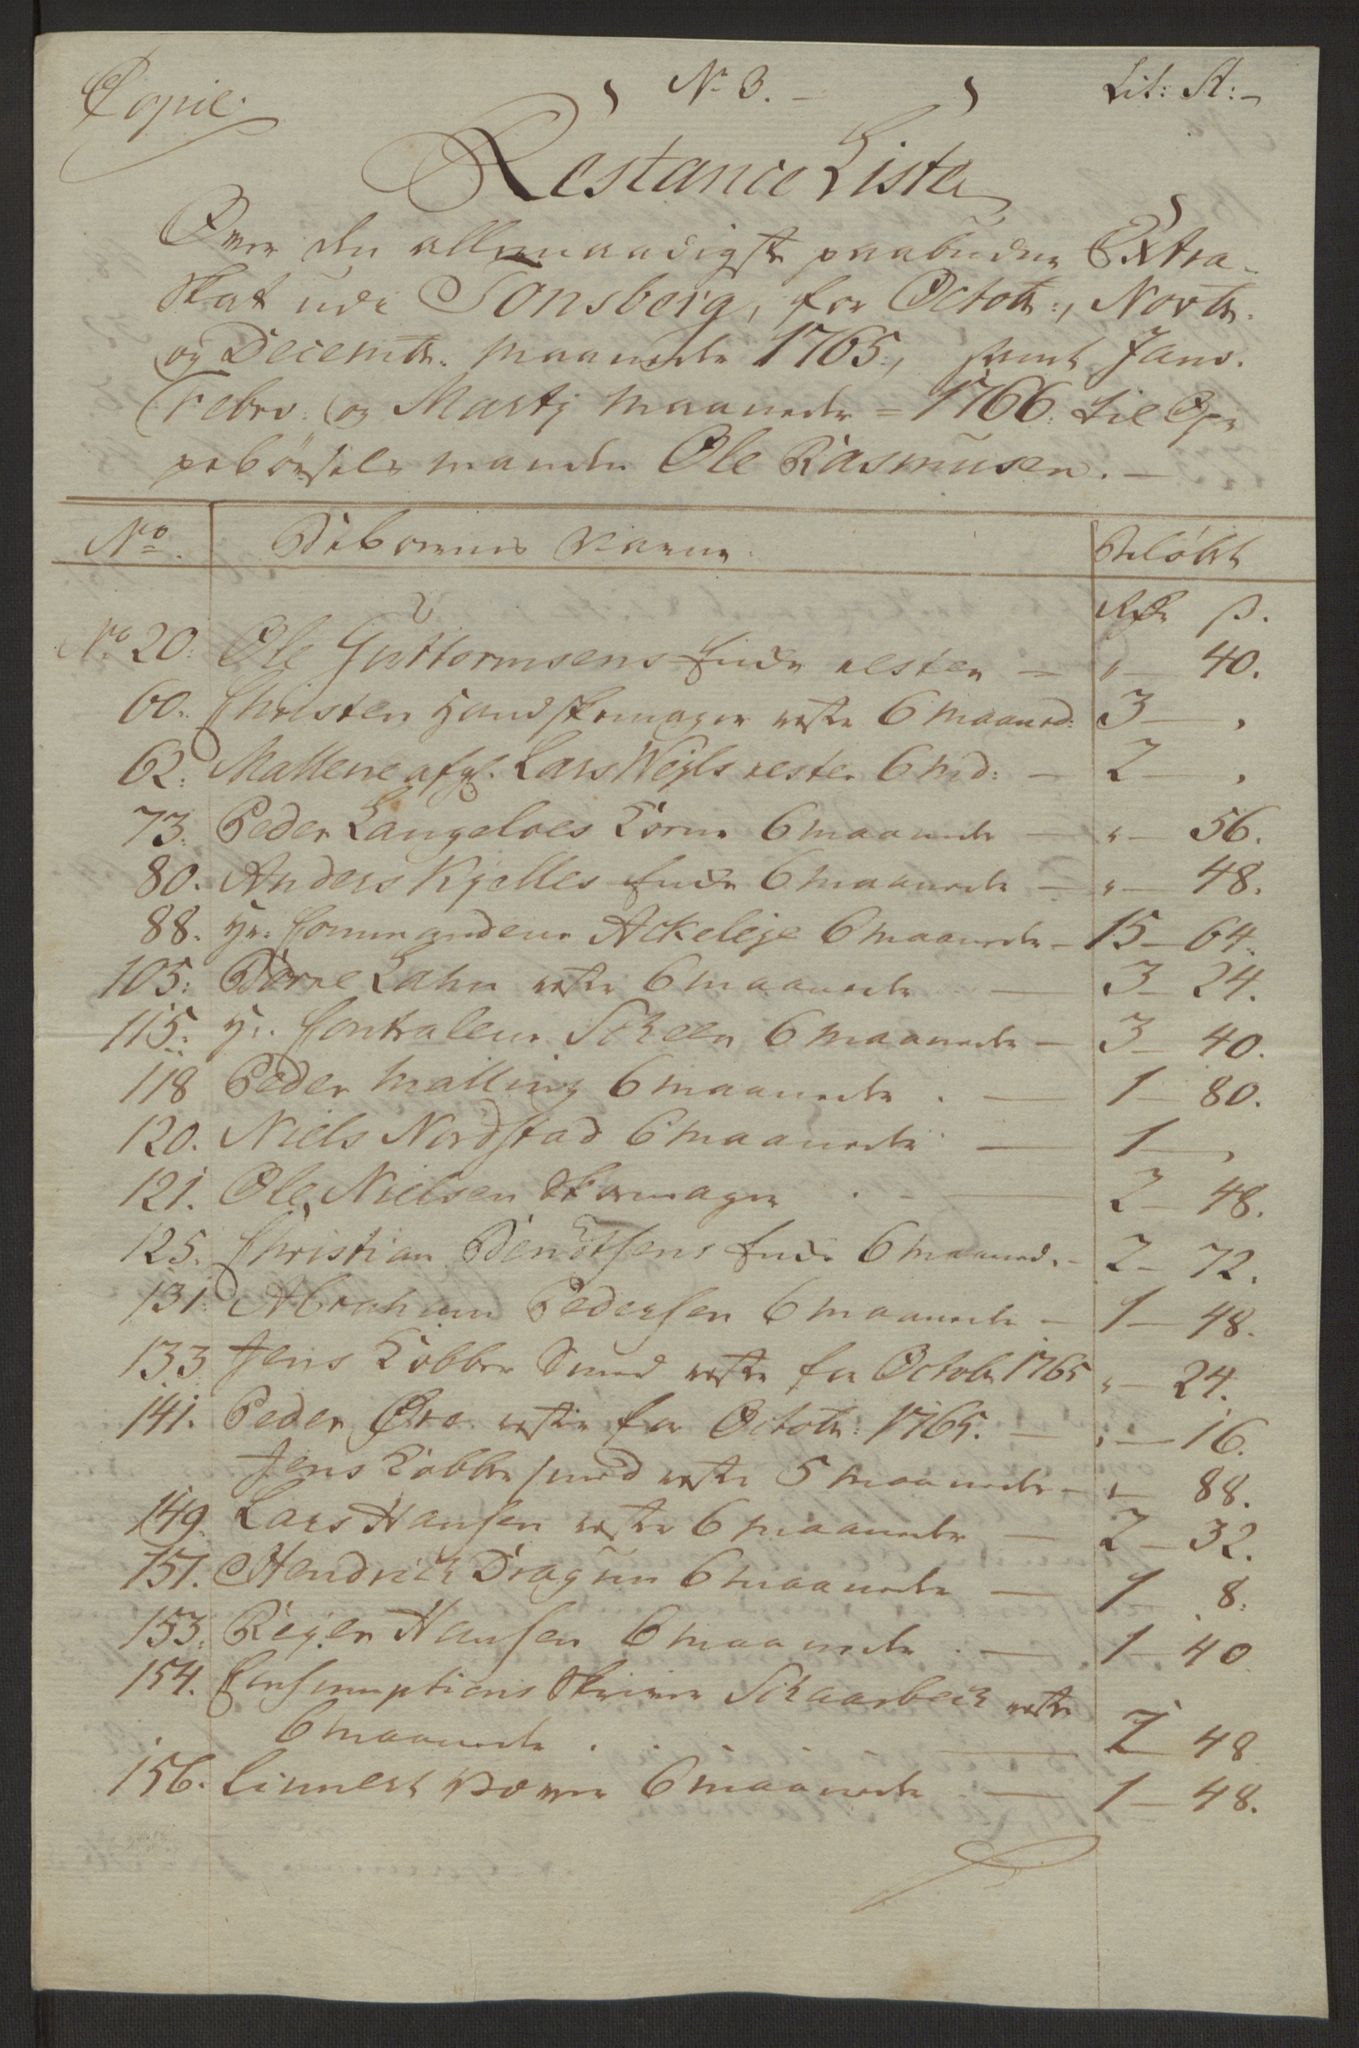 Copie.
No 3. Lit: A:
Restance Liste
Over den allernaadigst paabudne Extra-
Skat udi Tonsberg, for Octobr:, Novbr.
og Decembr. Maaneder 1765, samt Janv.
Febrv. og Martj Maaneder 1766. til Op-
pebørsels manden Ole Rasmusen.
No Debitorernes Navne Beløbet
Rdr ß.
No 20. Ole Guttormsens Enke rester - " 40.
60. Christen Handskemager rester 6 maaned: 3 - "
62. Mallene afgl. Lars Weyls rester 6 md: - 2 - "
73. Peder Langeloes Kone 6 maaneder - " - 56.
80. Anders Kjelles Enke 6 maaneder - " - 48.
88. Hr. Commandeur Ackeleye 6 maaneder - 15 - 64.
105. Børre Lahn rester 6 maaneder - 3 - 24.
115. Hr. Contraleur Scheen 6 maaneder - 3 - 40.
118 Peder Malling 6 maaneder - 1 - 80.
120. Niels Nordstad 6 maaneder - 1 - "
121. Ole Nielsen Skomager - 2 - 48.
125. Christian Bentsens Enke 6 maaned. - 2 - 72.
131. Abraham Pedersen 6 maaneder - 1 - 48.
133. Jens Kobber Smed rester for Octobr 1765 " - 24.
141. Peder Øro rester for Octobr: 1765. - " - 16.
Jens Kobbersmed rester 5 maaneder - " - 88.
149. Lars Hansen rester 6 maaneder - 2 - 32.
151. Hendrich Dragun 6 maaneder - 1 8.
153. Reyer Hansen 6 maaneder - 1 - 40
154. Consumptions Skriver Schaarbech rester
6 maaneder - 7 48
156. Linnert 6 maaneder - 1 - 48.